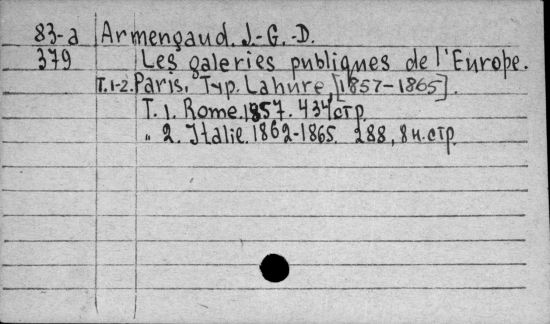 83-a Armengaud. J.-G.-D.
379 Les galeries publiques de l'Europe.
T.1-2. Paris, Typ. Lahure, [1857-1865].
T. 1. Rome. 1857. 434 стр.
" 2. Italie. 1862-1865. 288, 8 н. стр.